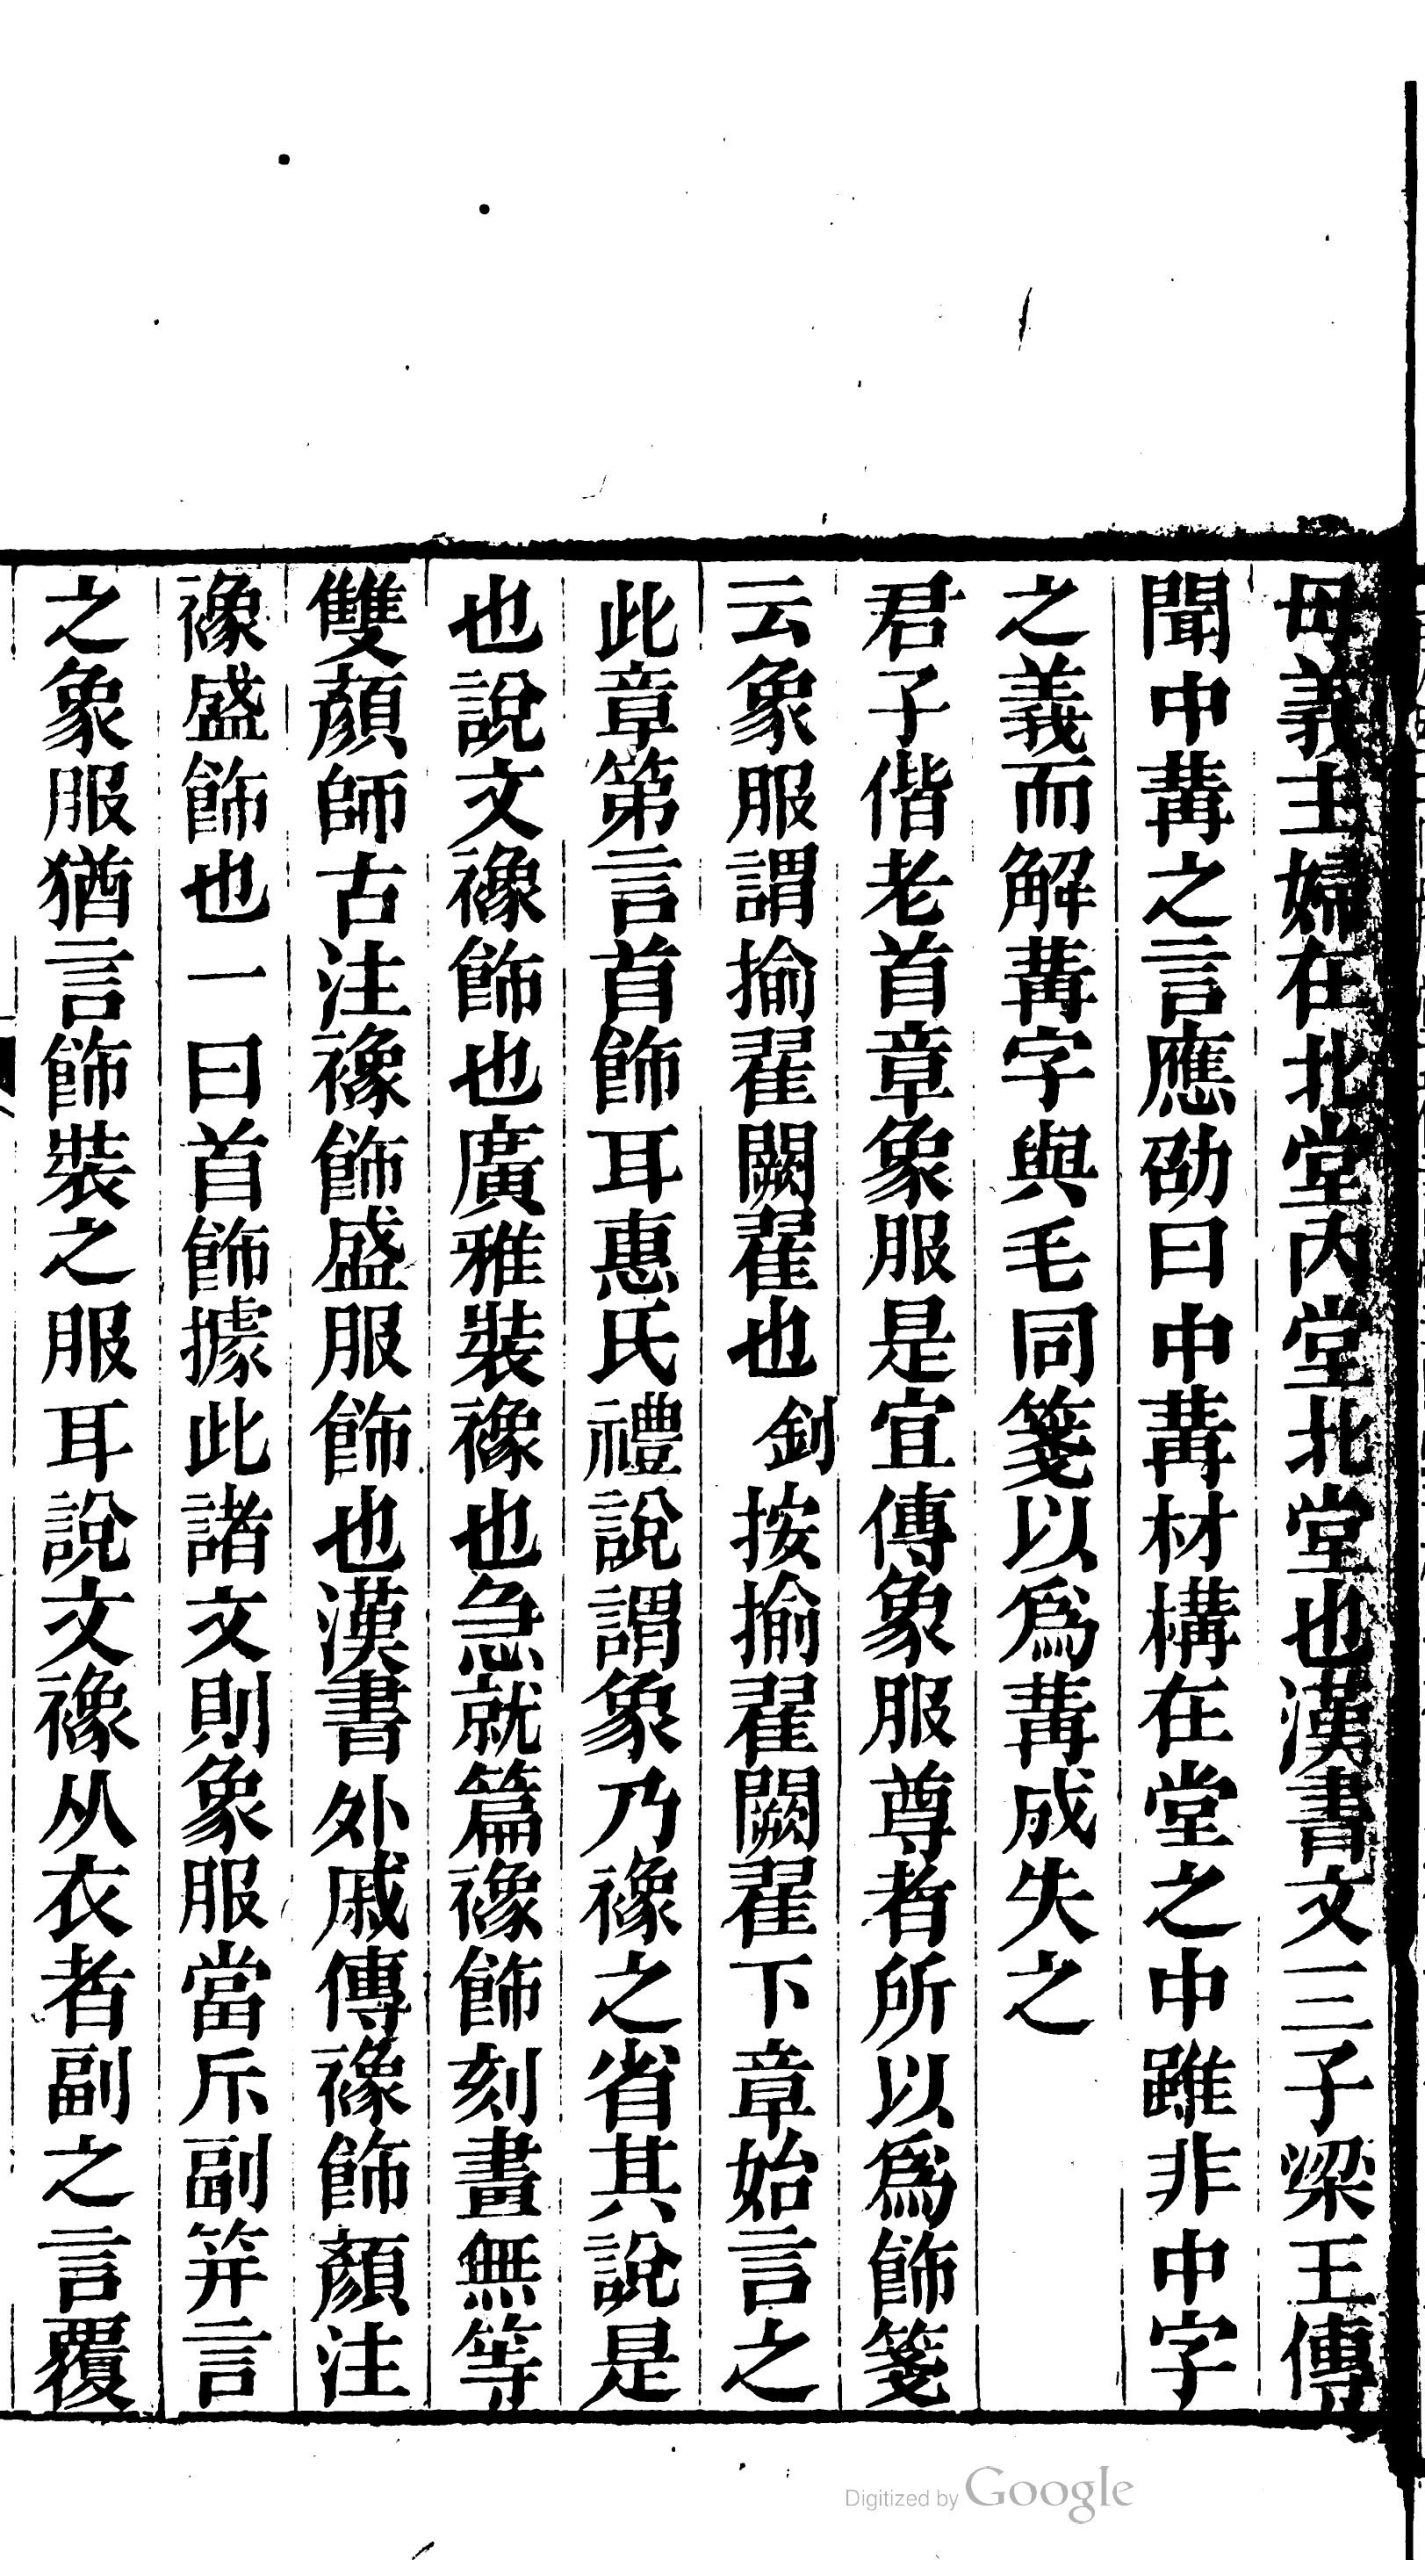 母義主婦在北堂丙堂北堂也漢書文三子梁王傳
聞中冓之言應劭曰中冓材構在堂之中雖非中字
之義而解冓字與毛同箋以爲冓成失之
君子偕老首章象服是宜傳象服尊者所以爲飾箋
云象服謂揄翟闕翟也 釗按揄翟闕翟下章始言之
此章第言首飾耳惠氏禮說謂象乃襐之省其說是
也說文襐飾也廣雅裝襐也急就篇襐飾刻畫無等
雙顏師古注襐飾盛服飾也漢書外戚傳襐飾顏注
襐盛飾也一曰首飾據此諸文則象服當斥副笄言
之象服猶言飾裝之服耳說文襐从衣者副之言覆
Digitized by Google